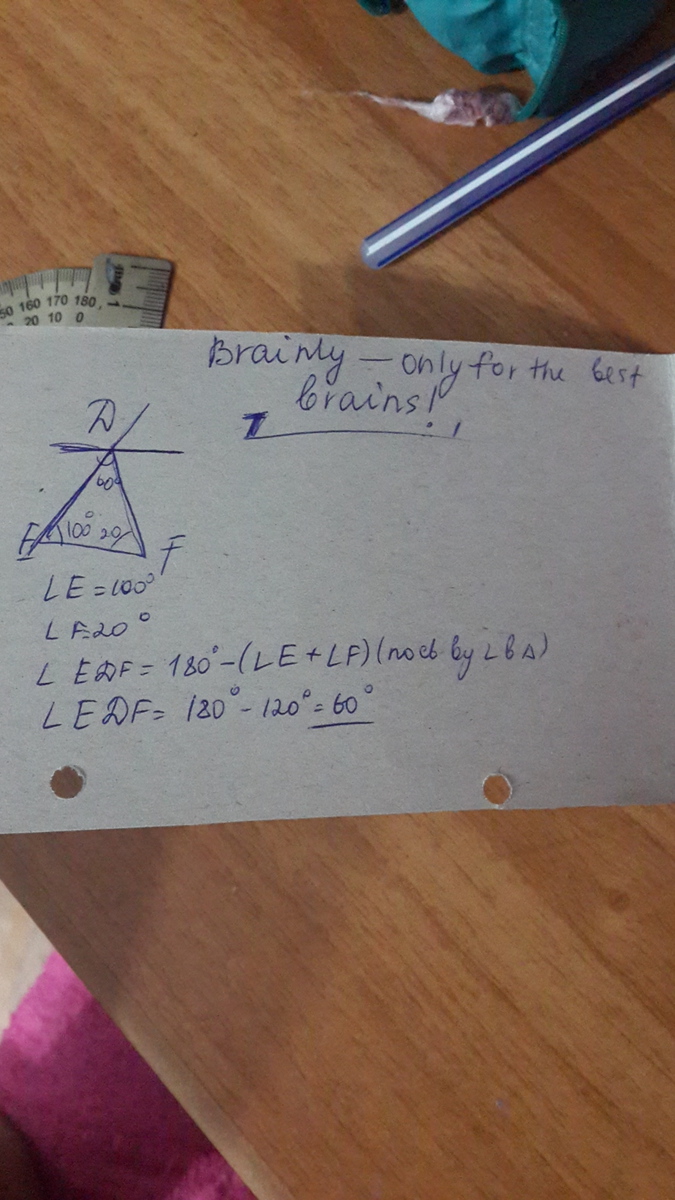 50 160 170 180
20 10 0
1
Brainly — only for the best
brains!
D
60°
E
100° 20
F
∠E=100°
∠F=20°
∠EDF= 180°-(∠E+∠F) (по сб-ву ∠ в Δ)
∠EDF= 180°-120°=60°